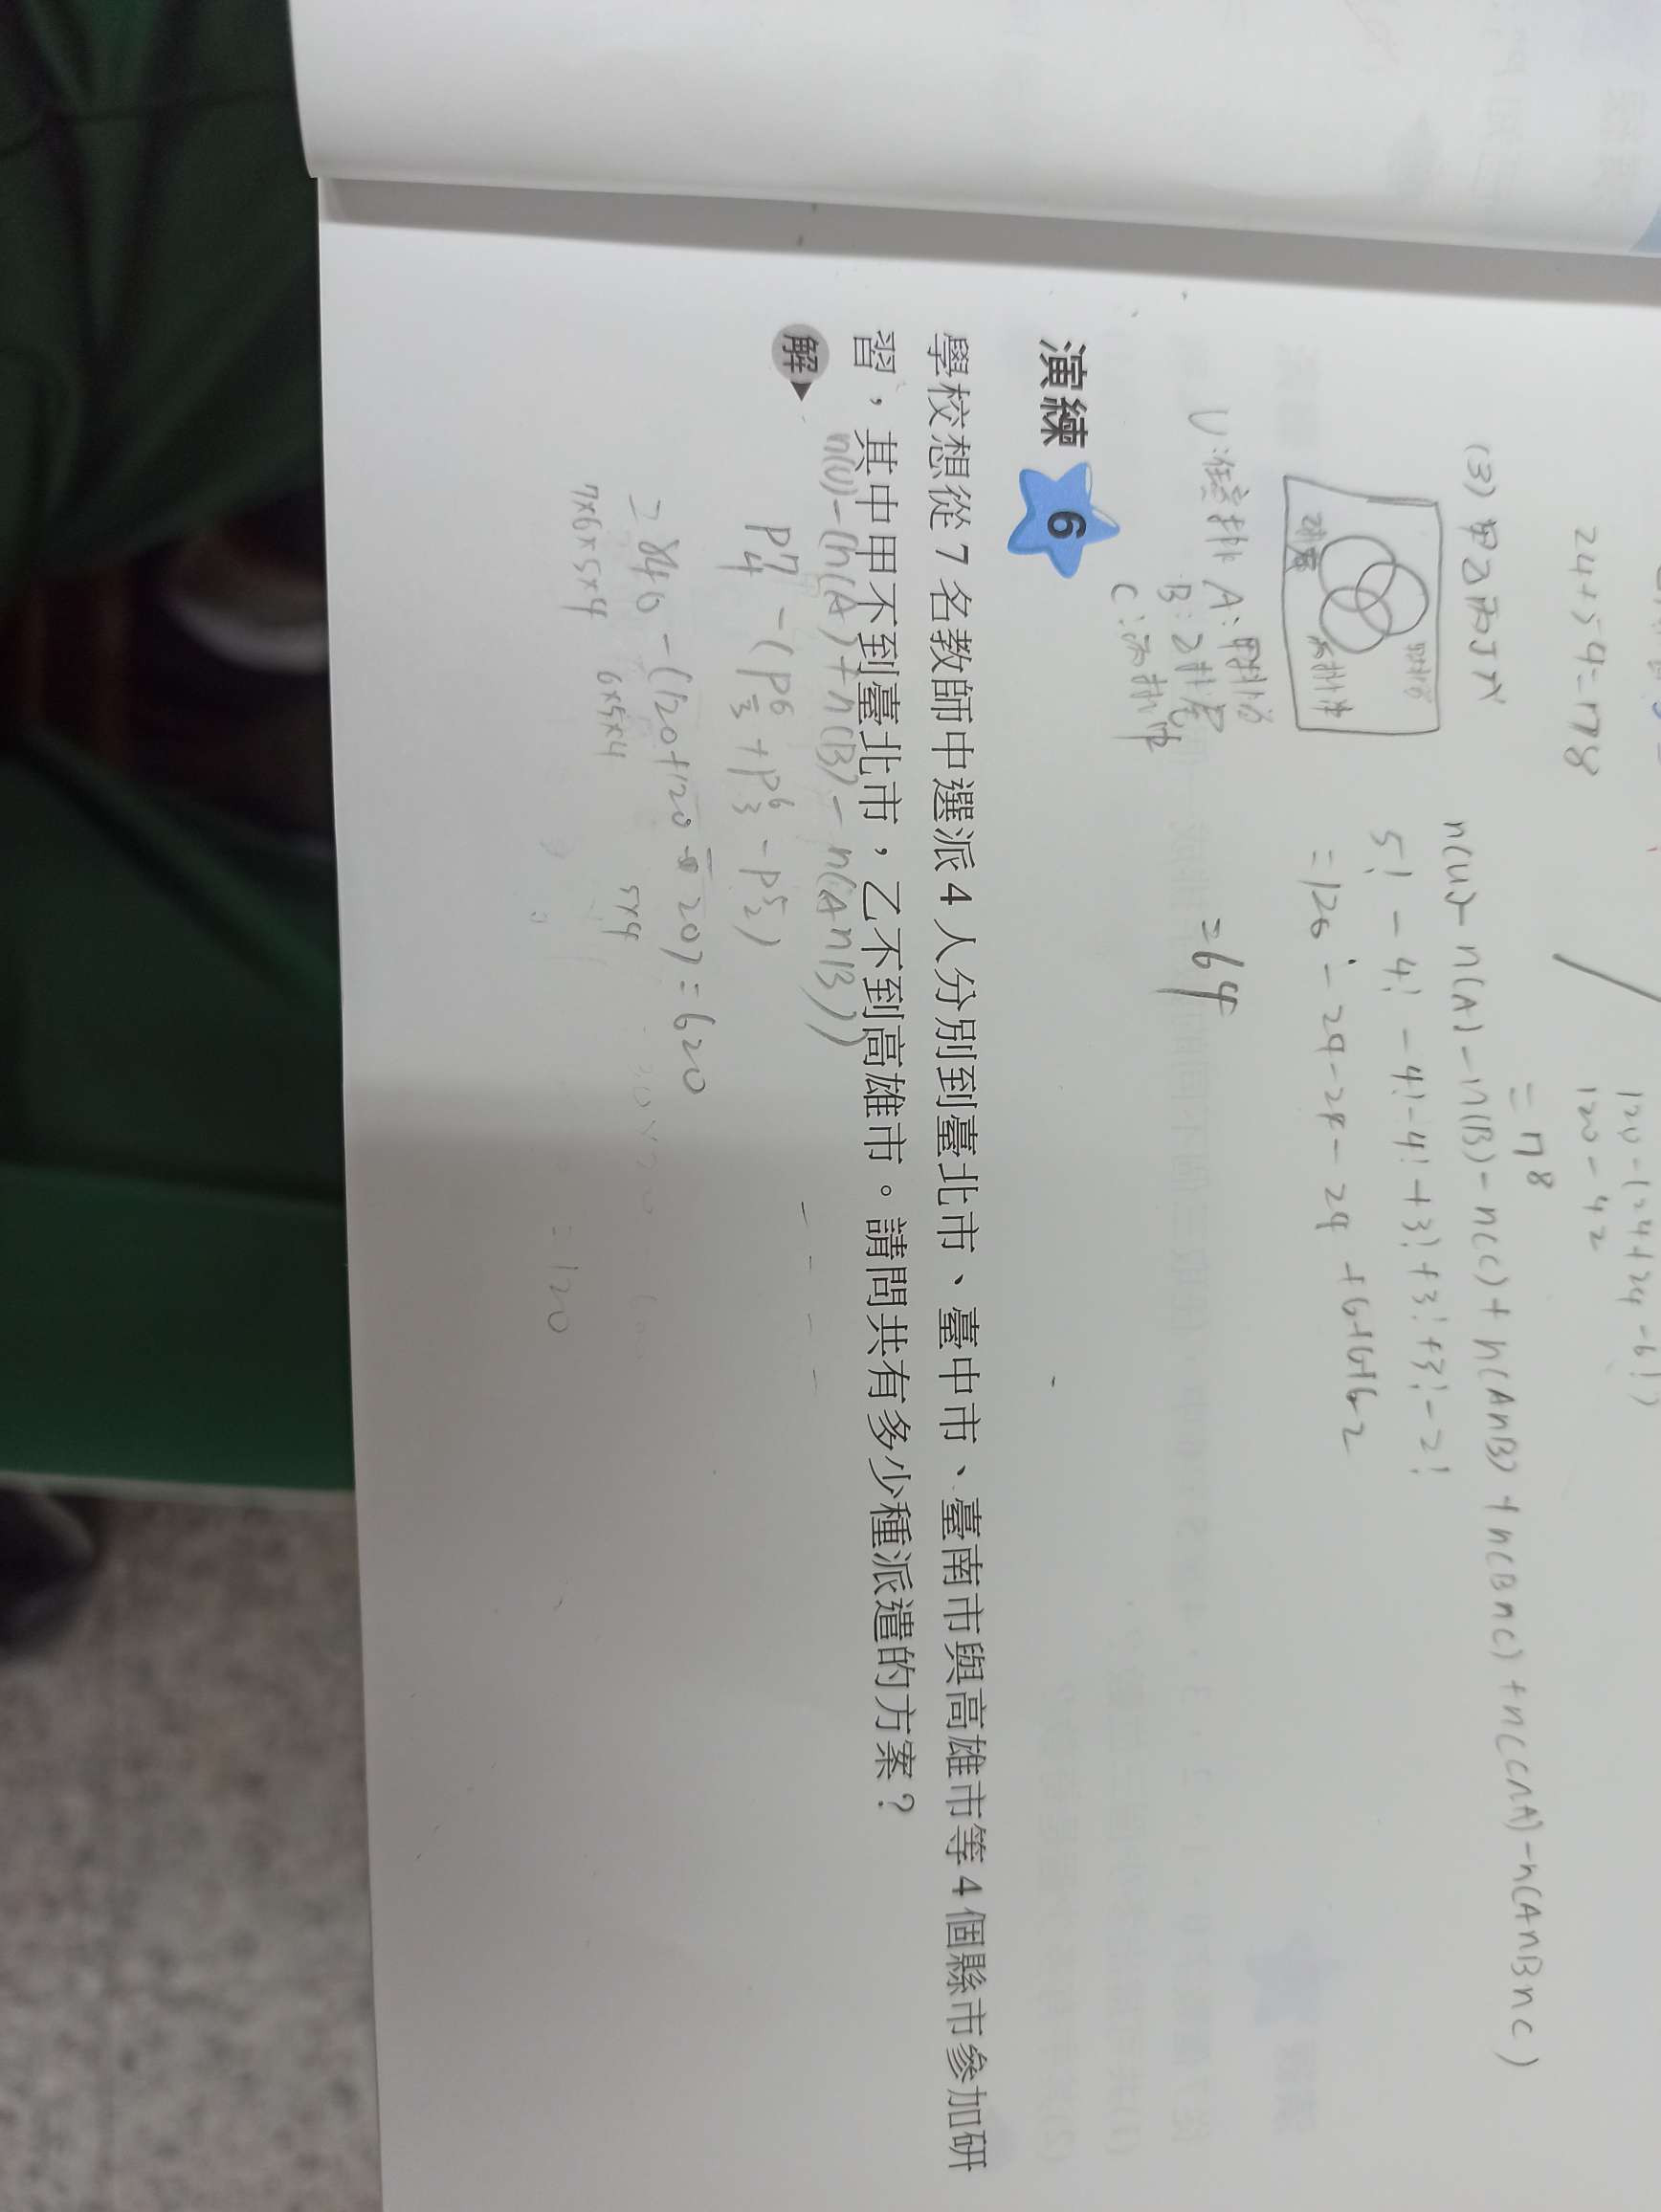 24+54=178
120-(24+24-6!)
120-42
=178
(3) 甲乙丙丁戊
n(U)-n(A)-n(B)-n(C)+n(A∩B)+n(B∩C)+n(C∩A)-n(A∩B∩C)
5!-4!-4!-4!+3!+3!+3!-2!
=120-24-24-24+6+6+6-2
=64
U:任意排 A:甲排首
B:乙排尾
C:丙排中
演練 6
學校想從 7 名教師中選派 4 人分別到臺北市、臺中市、臺南市與高雄市等 4 個縣市參加研
習,其中甲不到臺北市,乙不到高雄市。請問共有多少種派遣的方案?
解
n(U)-(n(A)+n(B)-n(A∩B))
P⁷₄-(P⁶₃+P⁶₃-P⁵₂)
=840-(120+120-20)=620
7×6×5×4 6×5×4 5×4
=120